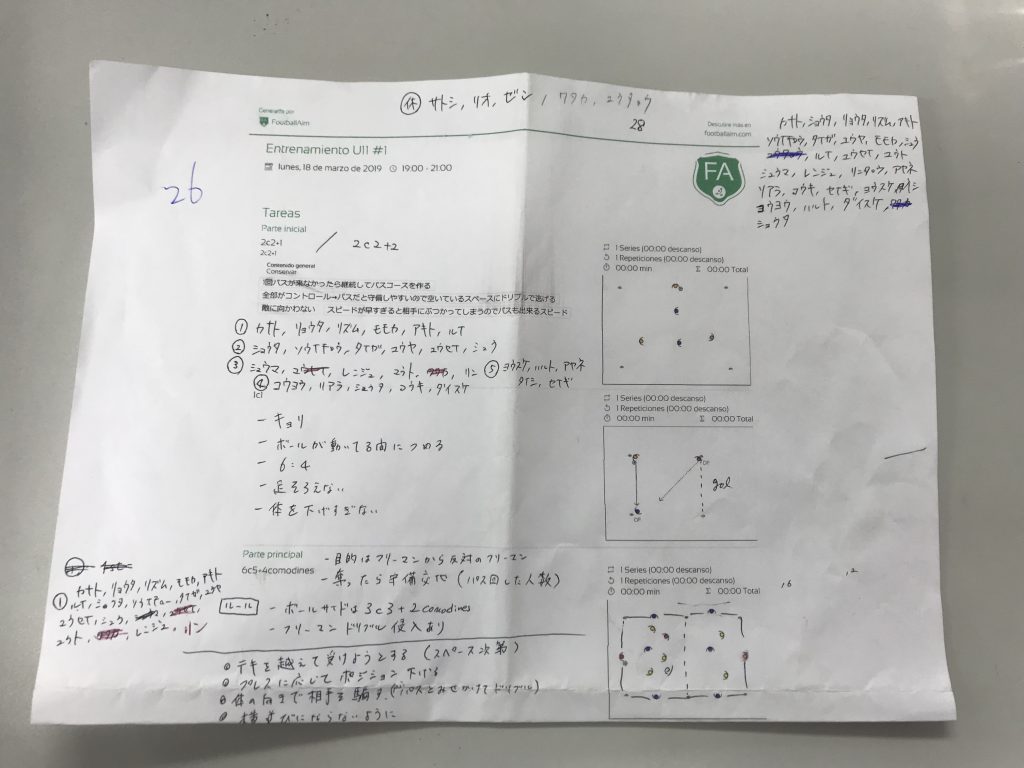 Generato por
FootballAim
㊡ サトシ, リオ, ゼン, ワタカ, ユウタロウ
28
Descubre más en
footballaim.com
カナト, ショウタ, リョウタ, リズム, アキト
ソウイチロウ, タイガ, ユウヤ, モモカ, シュウ
ルイ, ユウセイ, ユウト
シュウマ, レンジュ, リンタロウ, アヤネ
リアラ, コウキ, セイギ, ヨウスケ, タイシ
コウヨウ, ハルト, ダイスケ,
ショウタ
26
Entrenamiento U11 #1
lunes, 18 de marzo de 2019 19:00 - 21:00
FA
Tareas
Parte inicial
2c2+1 / 2c2+2
2c2+1
Contenido general
Conservar
1回パスが来なかったら継続してパスコースを作る
全部がコントロール→パスだと守備しやすいので空いているスペースにドリブルで逃げる
敵に向かわない スピードが早すぎると相手にぶつかってしまうのでパスも出来るスピード
① カナト, リョウタ, リズム, モモカ, アキト, ルイ
② ショウタ, ソウイチロウ, タイガ, ユウヤ, ユウセイ, シュウ
③ シュウマ, レンジュ, ユウト, リン ⑤ ヨウスケ, ハルト, アヤネ
タイシ, セイギ
④ コウヨウ, リアラ, ショウタ, コウキ, ダイスケ
1c1
- キョリ
- ボールが動いてる間につめる
- 6:4
- 足そろえない
- 体を下げすぎない
1 Series (00:00 descanso)
1 Repeticiones (00:00 descanso)
00:00 min Σ 00:00 Total
1 Series (00:00 descanso)
1 Repeticiones (00:00 descanso)
00:00 min Σ 00:00 Total
gol
Parte principal
6c5+4comodines
- 目的はフリーマンから反対のフリーマン
- 奪ったら守備交代 (パス回した人数)
ルール - ボールサイドは3c3+2comodines
- フリーマンドリブル侵入あり
① カナト, リョウタ, リズム, モモカ, アキト
ルイ, ショウタ, ソウイチロー, タイガ, ユウヤ
ユウセイ, シュウ,
ユウト, レンジュ, リン
1 Series (00:00 descanso)
1 Repeticiones (00:00 descanso)
00:00 min Σ 00:00 Total
◎ テキを越えて受けようとする (スペース次第)
◎ プレスに応じてポジション下げる
◎ 体の向きで相手を騙す (パスとみせかけてドリブル)
◎ 横並びにならないように